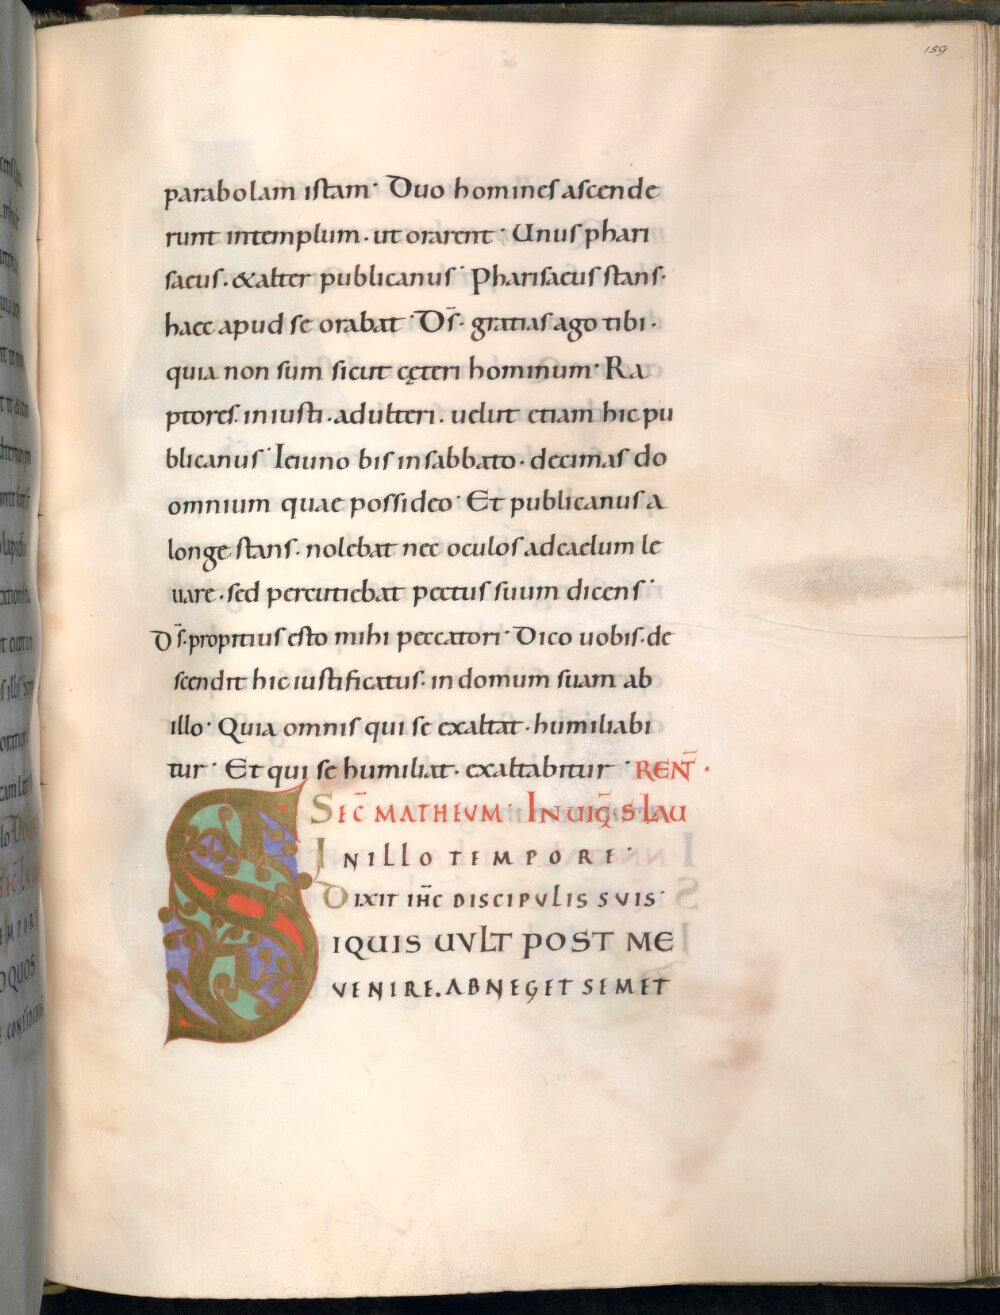 159
parabolam istam· Duo homines ascende
runt intemplum· ut orarent· Unus phari
saeus· &alter publicanus· Pharisaeus stans·
haec apud se orabat· Ds̄· gratias ago tibi·
quia non sum sicut cęteri hominum· Ra
ptores· iniusti· adulteri· uelut etiam hic pu
blicanus· Ieiuno bis in sabbato· decimas do
omnium quae possideo· Et publicanus a
longe stans· nolebat nec oculos adcaelum le
uare· sed percutiebat pectus suum dicens·
Ds̄· propitius esto mihi peccatori· Dico uobis· de
scendit hic iustificatus· in domum suam ab
illo· Quia omnis qui se exaltat· humiliabi
tur· Et qui se humiliat· exaltabitur· RENT̄·
SEC̄ MATHEVM· IN UIG̅· S· LAU
IN ILLO TEMPORE·
DIXIT IH̄C DISCIPVLIS SVIS·
SIQUIS UVLT POST ME
VENIRE. ABNEGET SEMET